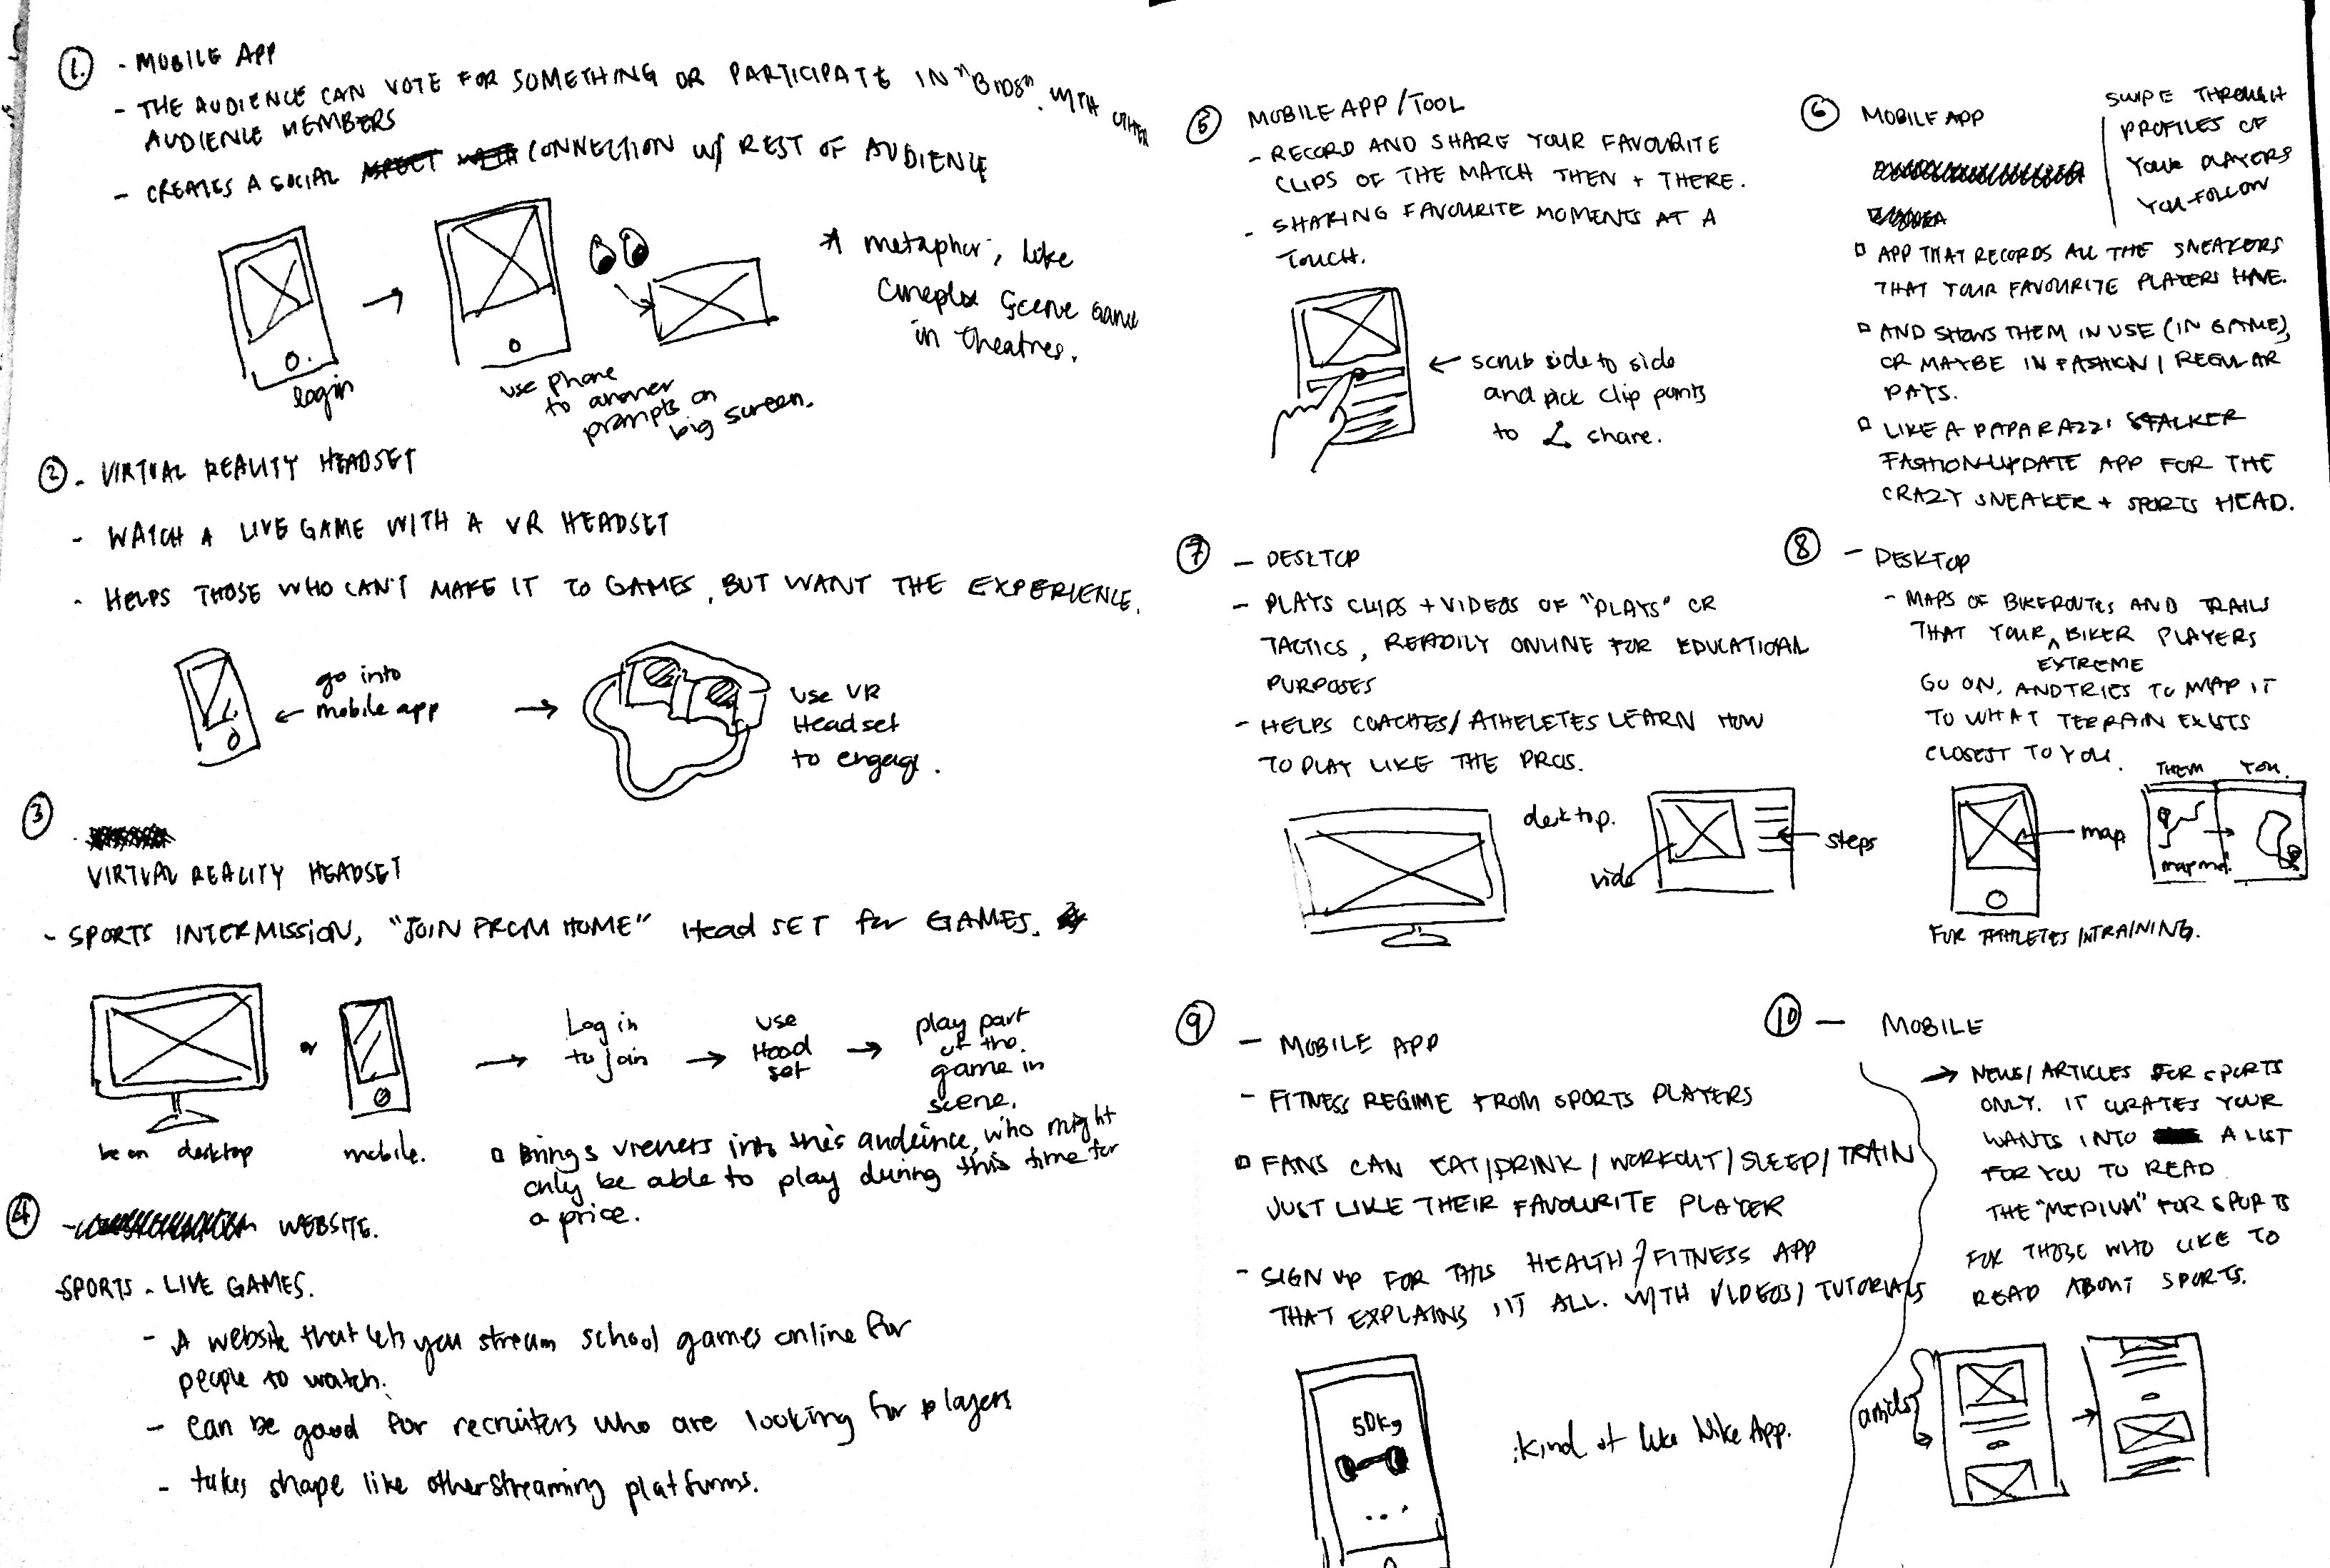 1. - MOBILE APP
- THE AUDIENCE CAN VOTE FOR SOMETHING OR PARTICIPATE IN "BIDS". WITH OTHER
AUDIENCE MEMBERS
- CREATES A SOCIAL CONNECTION w/ REST OF AUDIENCE
login
use phone
to answer
prompts on
big screen.
* metaphor, like
Cineplex Scene Game
in theatres.
2 - VIRTUAL REALITY HEADSET
- WATCH A LIVE GAME WITH A VR HEADSET
- HELPS THOSE WHO CAN'T MAKE IT TO GAMES, BUT WANT THE EXPERIENCE.
go into
← mobile app
→
use VR
Headset
to engage.
3
VIRTUAL REALITY HEADSET
- SPORTS INTERMISSION, "JOIN FROM HOME" Head SET for GAMES.
or
→ Log in
to join
→ use
Head
set
→ play part
of the
game in
scene.
be on desktop
mobile.
Brings viewers into this audience, who might
only be able to play during this time for
a price.
4 - WEBSITE.
SPORTS - LIVE GAMES.
- A website that lets you stream school games online for
people to watch.
- can be good for recruiters who are looking for players
- takes shape like other streaming platforms.
5 MOBILE APP / TOOL
- RECORD AND SHARE YOUR FAVOURITE
CLIPS OF THE MATCH THEN + THERE.
- SHARING FAVOURITE MOMENTS AT A
TOUCH.
← scrub side to side
and pick clip points
to share.
6 MOBILE APP
SWIPE THROUGH
PROFILES OF
YOUR PLAYERS
YOU FOLLOW
APP THAT RECORDS ALL THE SNEAKERS
THAT YOUR FAVOURITE PLAYERS HAVE.
AND SHOWS THEM IN USE (IN GAME),
OR MAYBE IN FASHION / REGULAR
DAYS.
LIKE A PAPARAZZI STALKER
FASHION-UPDATE APP FOR THE
CRAZY SNEAKER + SPORTS HEAD.
7 - DESKTOP
- PLAYS CLIPS + VIDEOS OF "PLAYS" OR
TACTICS, READILY ONLINE FOR EDUCATIONAL
PURPOSES
- HELPS COACHES / ATHELETES LEARN HOW
TO PLAY LIKE THE PROS.
desktop.
video
← steps
8 - DESKTOP
- MAPS OF BIKEROUTES AND TRAILS
THAT YOUR EXTREME BIKER PLAYERS
GO ON, AND TRIES TO MAP IT
TO WHAT TERRAIN EXISTS
CLOSEST TO YOU.
THEM YOU.
map
FOR ATHLETES IN TRAINING.
9 - MOBILE APP
- FITNESS REGIME FROM SPORTS PLAYERS
FANS CAN EAT/DRINK/WORKOUT/SLEEP/TRAIN
JUST LIKE THEIR FAVOURITE PLAYER
- SIGN UP FOR THIS HEALTH / FITNESS APP
THAT EXPLAINS IT ALL. WITH VIDEOS / TUTORIALS
50kg
...
:kind of like Nike App.
10 - MOBILE
→ NEWS/ARTICLES FOR SPORTS
ONLY. IT CURATES YOUR
WANTS INTO A LIST
FOR YOU TO READ
THE "MEDIUM" FOR SPORTS
FOR THOSE WHO LIKE TO
READ ABOUT SPORTS.
articles